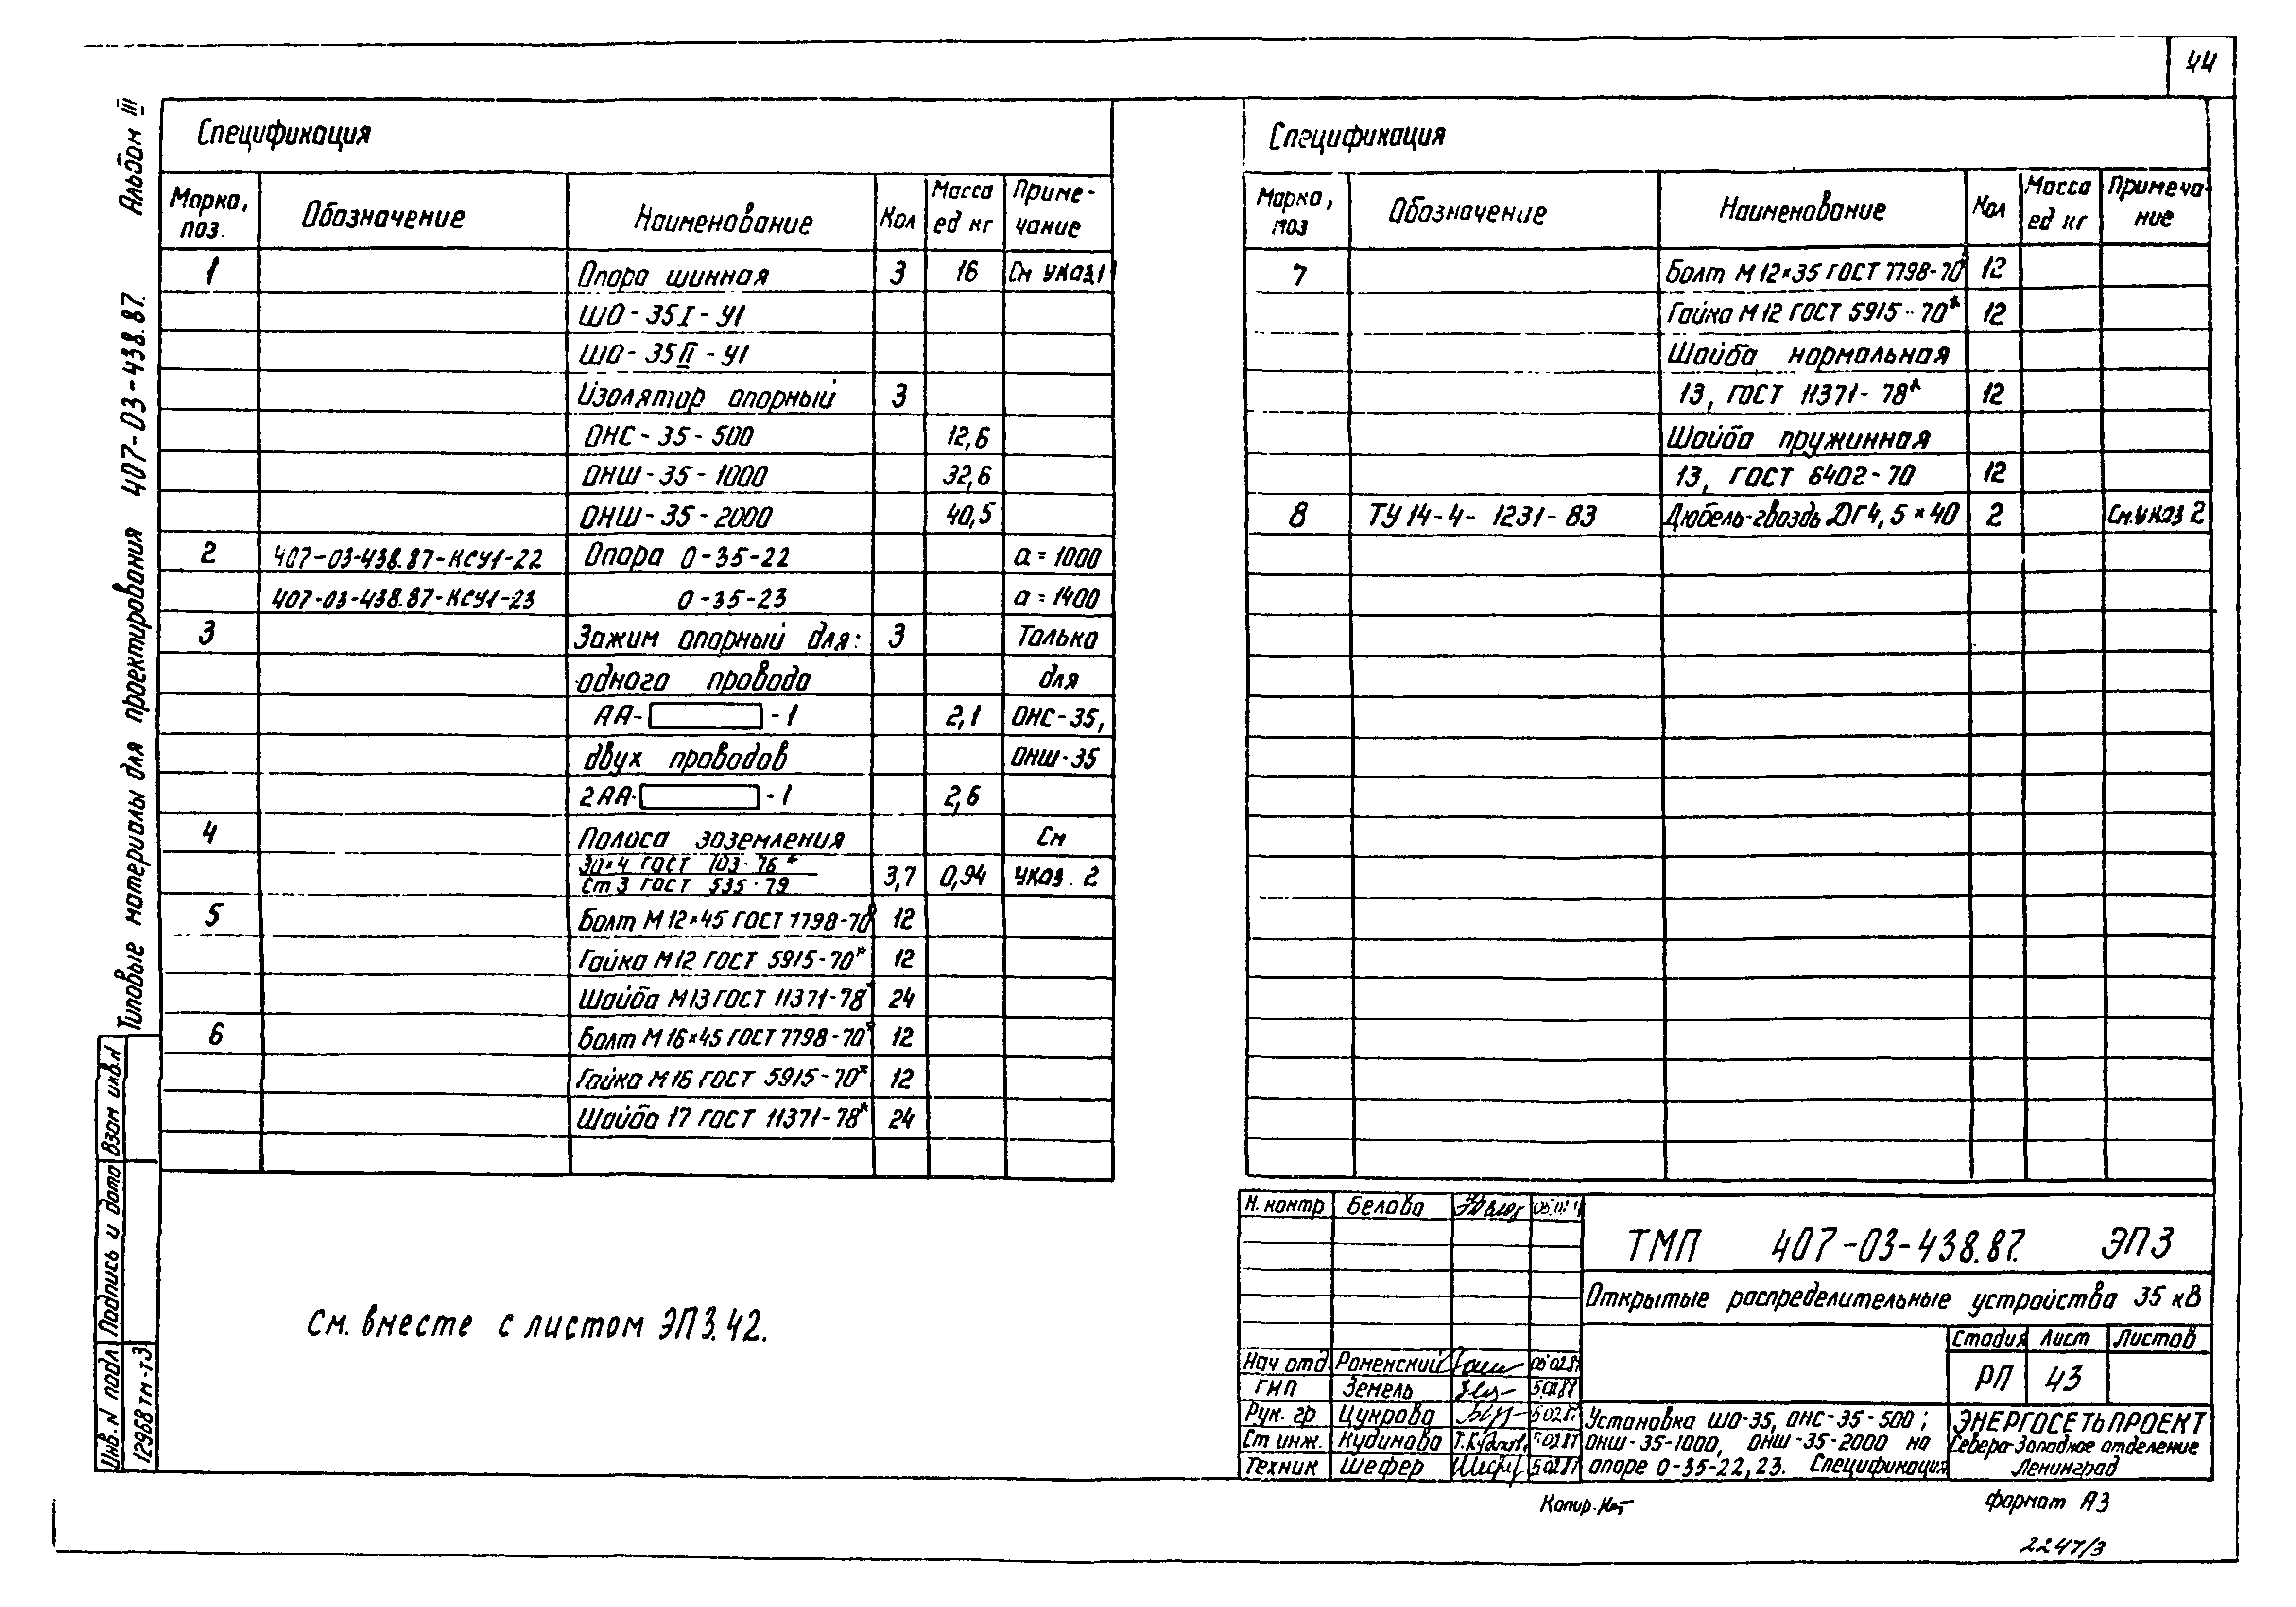 44
Альбом III
Типовые материалы для проектирования 407-03-438.87.
Спецификация
Марка, поз. Обозначение Наименование Кол Масса ед кг Приме-чание
1 Опора шинная 3 16 См указ1
ШО-35I-У1
ШО-35II-У1
Изолятор опорный 3
ОНС-35-500 12,6
ОНШ-35-1000 32,6
ОНШ-35-2000 40,5
2 407-03-438.87-КСУ1-22 Опора О-35-22 а=1000
407-03-438.87-КСУ1-23 О-35-23 а=1400
3 Зажим опорный для: 3 Только
одного провода для
АА- -1 2,1 ОНС-35,
двух проводов ОНШ-35
2АА- -1 2,6
4 Полоса заземления См
30×4 ГОСТ 103-76*
Ст3 ГОСТ 535-79 3,7 0,94 указ. 2
5 Болт М12×45 ГОСТ 7798-70* 12
Гайка М12 ГОСТ 5915-70* 12
Шайба М13 ГОСТ 11371-78* 24
6 Болт М16×45 ГОСТ 7798-70* 12
Гайка М16 ГОСТ 5915-70* 12
Шайба 17 ГОСТ 11371-78* 24
См. вместе с листом ЭП3.42.
Спецификация
Марка, поз Обозначение Наименование Кол Масса ед кг Примеча-ние
7 Болт М12×35 ГОСТ 7798-70* 12
Гайка М12 ГОСТ 5915-70* 12
Шайба нормальная
13, ГОСТ 11371-78* 12
Шайба пружинная
13, ГОСТ 6402-70 12
8 ТУ 14-4-1231-83 Дюбель-гвоздь ДГ4,5×40 2 См.указ 2
Н. контр Белова
ТМП 407-03-438.87. ЭП3
Открытые распределительные устройства 35 кВ
Стадия Лист Листов
РП 43
Нач отд Роменский
ГИП Земель
Рук. гр Цукрова
Ст инж. Кудинова
Техник Шефер
Установка ШО-35, ОНС-35-500;
ОНШ-35-1000, ОНШ-35-2000 на
опоре О-35-22,23. Спецификация
ЭНЕРГОСЕТЬПРОЕКТ
Северо-Западное отделение
Ленинград
Копир.
формат А3
2247/3
Инв. N подл Подпись и дата Взам инв.N
12968тм-т3